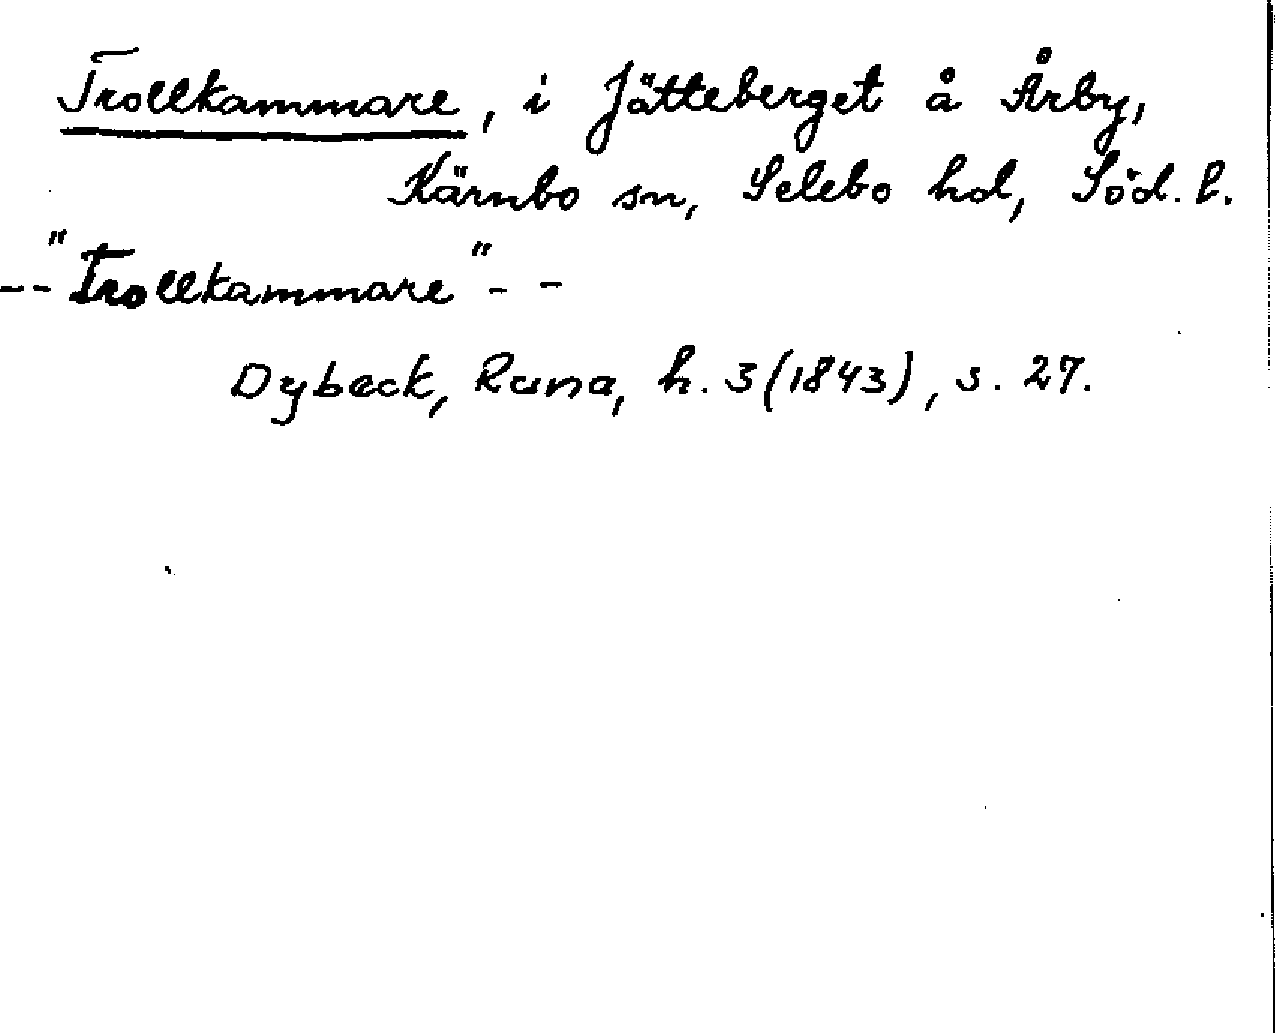 Trollkammare, i Jätteberget å Årby,
Kärnbo sn, Selebo hd, Söd. l.
-- "Trollkammare" - -
Dybeck, Runa, h. 3 (1843), s. 27.